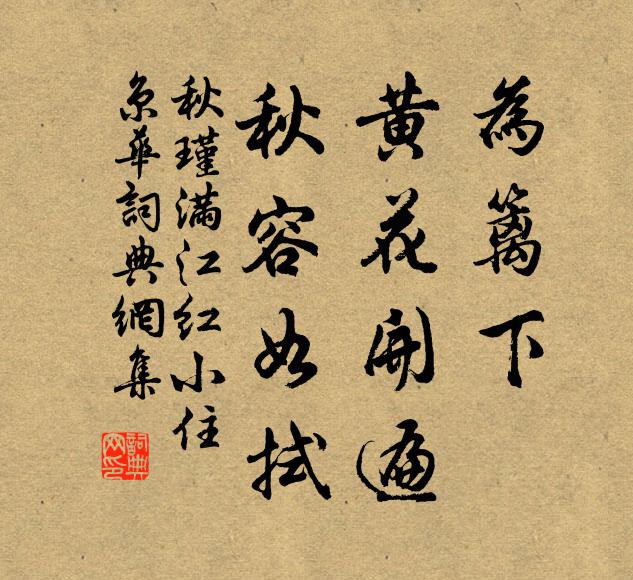 為籬下
黄花開遍
秋容如拭
秋瑾滿江红小住
京華詞典網集
詞典网印